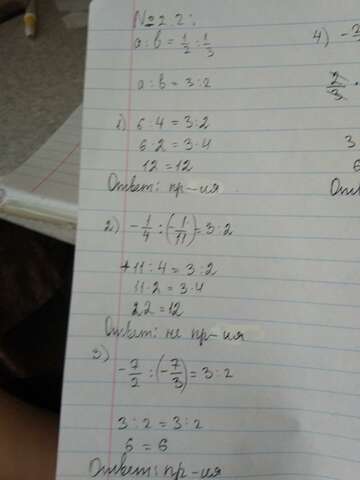 №2.2:
a : b = 1/2 : 1/3
a : b = 3 : 2
1) 6 : 4 = 3 : 2
6 · 2 = 3 · 4
12 = 12
Ответ: пр-ия.
2) -1/4 : (-1/11) = 3 : 2
+11 : 4 = 3 : 2
11 · 2 = 3 · 4
22 = 12
Ответ: не пр-ия
3) -7/2 : (-7/3) = 3 : 2
3 : 2 = 3 : 2
6 = 6
Ответ: пр-ия
4)
2/3
3
6
Отве